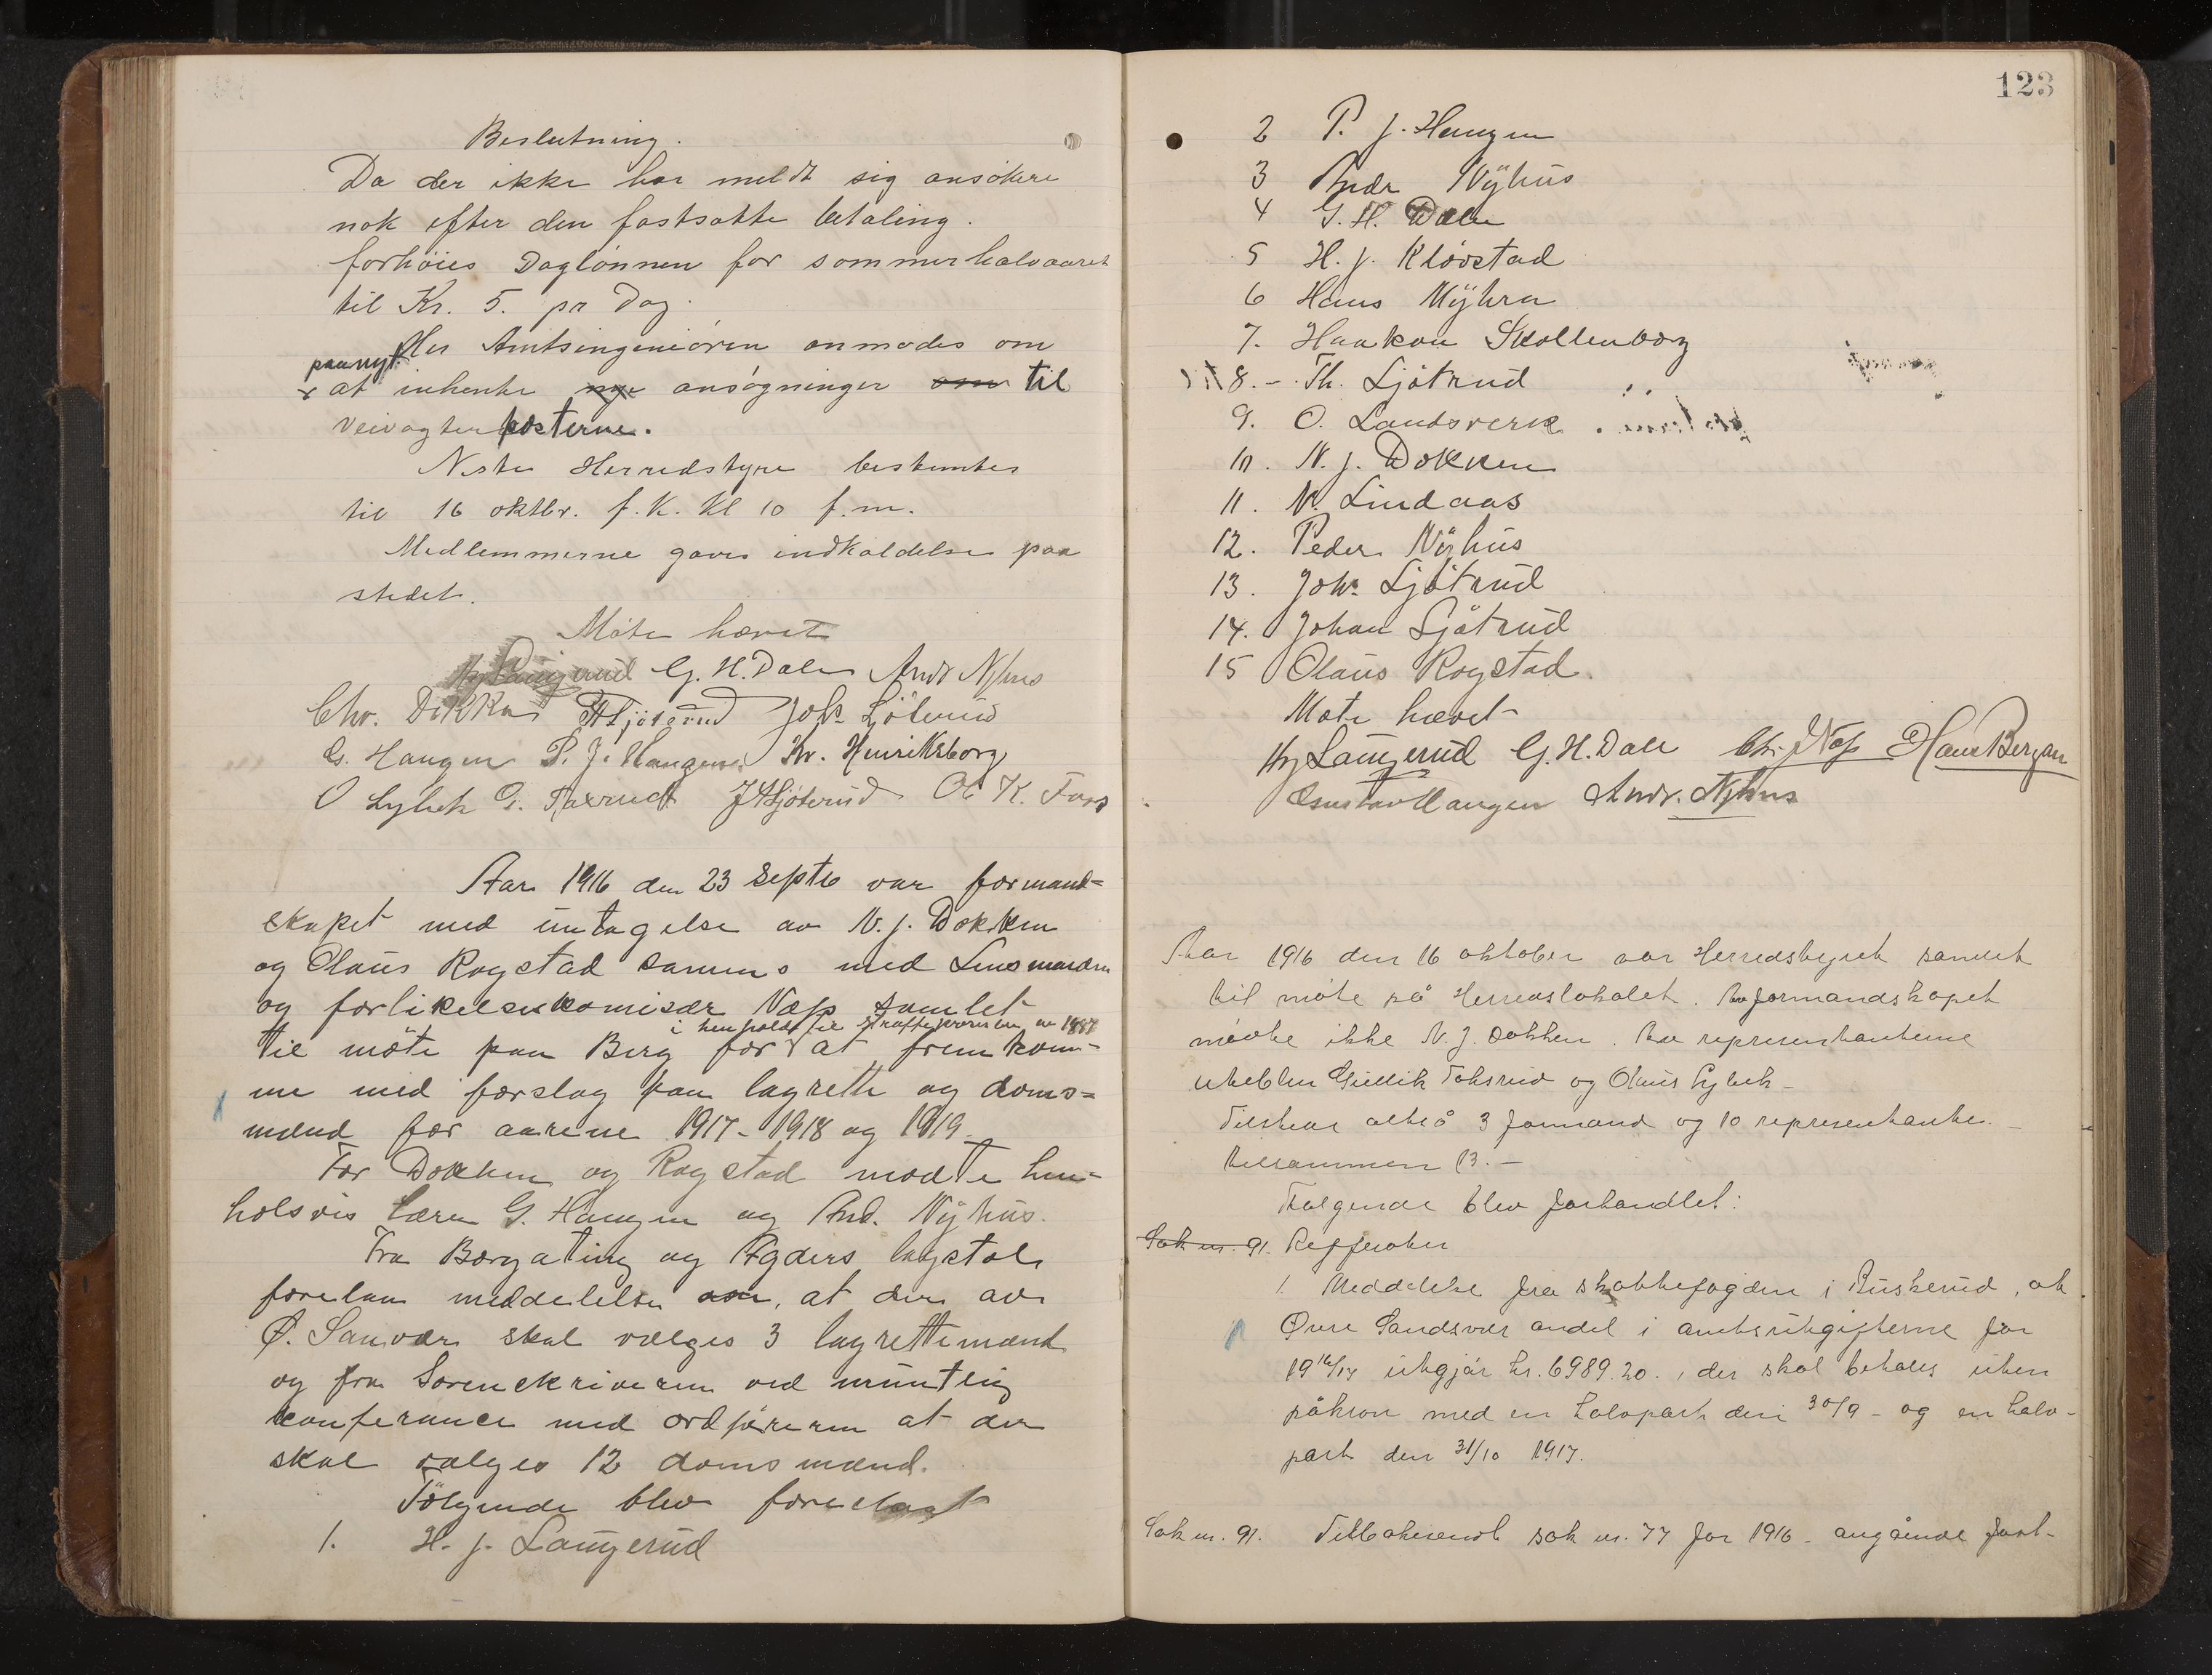 Beslutning.
Da der ikke har meldt sig ansökere
nok efter den fastsatte betaling.
forhöies Daglönnen for sommerhalvaaret
til Kr. 5. pr Dag.
Hr. Amtsingeniören anmodes om
paanyt
at inhente nye ansögninger om til
veivogterposterne.
Neste Herredstyre bestemtes
til 16 oktbr. f.k. Kl 10 f.m.
Medlemmerne gaves indkaldelse paa
stedet.
Möte hævet
H J Langerud G. H. Dale Andr Nyhus
Chr. Dokka Th Ljöterud Johs Ljöterud
G. Haugen P. J. Haugen Kr. Henriksborg
O Lybek G. Taxrud J H Ljöterud Ol. K. Foss
Aar 1916 den 23 Septb var formand=
skapet med untagelse av N. J. Dokken
og Olaus Rogstad samens med Lensmanden
og forlikelseskomisær Næss samlet
i henhold til straffeprocesen av 1887
til möte paa Berg for at fremkom=
me med forslag paa lagrette og doms=
mænd for aarene 1917 - 1918 og 1919.
For Dokken og Rogstad mødte hen=
holsvis Lærer G. Haugen og And. Nyhus.
Fra Borgating og Agders lagstol
forelaa meddelelse om, at der av
Ø. Sanvær skal vælges 3 lagrettemænd
og fra Sorenskriveren ved muntlig
konferance med ordföreren at der
skal vælges 12 domsmænd.
Fölgende blev foreslagt
1. H. J. Langerud
123
2 P. J. Haugen
3 Andr Nyhus
4 G. H. Dale
5 H. J. Klövstad
6 Hans Myhra
7. Haakon Skollenborg
8. - Th. Ljötrud
9. O. Landsverk
10. N. J. Dokken
11. N. Lindaas
12. Peder Nyhus
13. Johs Ljötrud
14. Johan Ljötrud
15 Olaus Rogstad.
Möte hævet
H J Langerud G. H. Dale Chr. J Næss Hans Bergan
Gustav Haugen Andr. Nyhus
Aar 1916 den 16 oktober var Herredstyret samlet
til möte på Herredslokalet. Av formandskapet
mødte ikke N. J. Dokken. Av representanterne
uteblev Gullik Toksrud og Olaus Lybek -
Tilstede altså 3 formænd og 10 representanter. -
tilsammen 13. -
Følgende blev forhandlet:
Sak nr. 91. Refferater
1. Meddelelse fra skattefogden i Buskerud, at
Øvre Sandsvær andel i amtsutgifterne for
1916/17 utgjør kr. 6989.20., der skal betales uten
påkrav med en halvpart den 30/9 - og en halv-
part den 31/10 1917.
Sak nr. 91. Tilbakesendt sak nr. 77 for 1916 - angående fast-